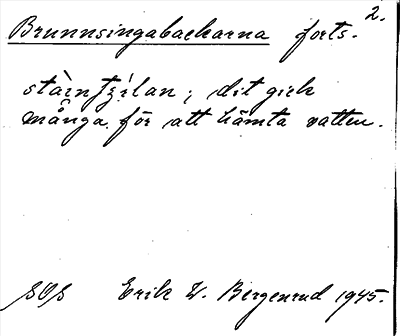 2.
Brunnsingabackarna forts.
; dit gick
många för att hämta vatten.
SOS Erik W. Bergenrud 1945.